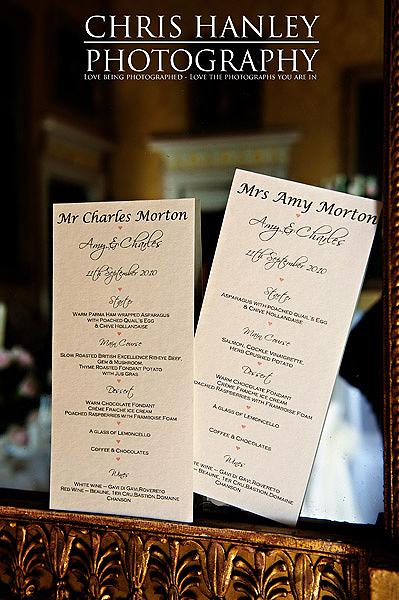 CHRIS HANLEY
PHOTOGRAPHY
LOVE BEING PHOTOGRAPHED - LOVE THE PHOTOGRAPHS YOU ARE IN
Mr Charles Morton
Amy & Charles
11th September 2010
Starter
WARM PARMA HAM WRAPPED ASPARAGUS
WITH POACHED QUAIL'S EGG
& CHIVE HOLLANDAISE
Main Course
SLOW ROASTED BRITISH EXCELLENCE RIB-EYE BEEF,
GEM & MUSHROOM,
THYME ROASTED FONDANT POTATO
WITH JUS GRAS
Dessert
WARM CHOCOLATE FONDANT
CRÈME FRAICHE ICE CREAM
POACHED RASPBERRIES WITH FRAMBOISE FOAM
A GLASS OF LEMONCELLO
COFFEE & CHOCOLATES
Wines
WHITE WINE – GAVI DI GAVI, ROVERETO
RED WINE – BEAUNE, 1ER CRU, BASTION, DOMAINE
CHANSON
Mrs Amy Morton
Amy & Charles
11th September 2010
Starter
ASPARAGUS WITH POACHED QUAIL'S EGG
& CHIVE HOLLANDAISE
Main Course
SALMON, COCKLE VINAIGRETTE,
HERB CRUSHED POTATO
Dessert
WARM CHOCOLATE FONDANT
CRÈME FRAICHE ICE CREAM
POACHED RASPBERRIES WITH FRAMBOISE FOAM
A GLASS OF LEMONCELLO
COFFEE & CHOCOLATES
Wines
WHITE WINE – GAVI DI GAVI, ROVERETO
WINE – BEAUNE, 1ER CRU, BASTION, DOMAINE
CHANSON